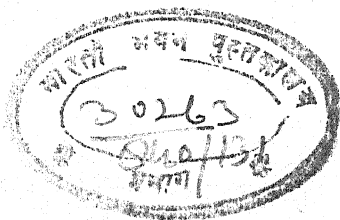 भारती भवन पुस्तकालय
30263
प्रयाग